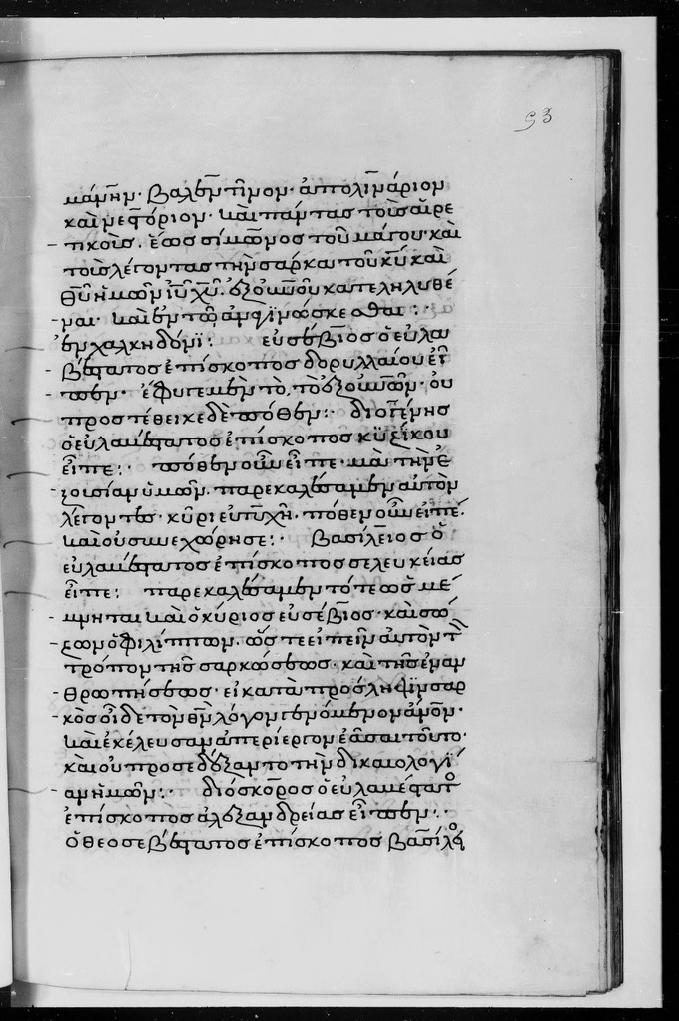 93
μάνην· βαλεντῖνον· ἀπολινάριον
καὶ νεστόριον· καὶ πάντας τοὺς αἱρε
τικοὺς. ἕως σίμωνος τοῦ μάγου· καὶ
τοὺς λέγοντας τὴν σάρκα τοῦ κ̅υ̅ καὶ
θ̅υ̅ ἡμῶν ι̅υ̅ χ̅υ̅. ἐξ οὐ̅ν̅ο̅υ̅ κατεληλυθέ
ναι· καὶ ἐν τῶ ἀναγινώσκεσθαι :·
ἐν χαλκηδόνϊ : εὐσέβιος ὁ εὐλα
βέστατος ἐπίσκοπος δορυλλαίου εἶ
πεν· ἔφυγεν ἐν τὸ, τὸ ἐξ οὐ̅ν̅ῶν· οὐ
προστέθεικε δὲ πόθεν :· διογένης
ὁ εὐλαβέστατος ἐπίσκοπος κϋζίκου
εἶπε :· πόθεν οὖν εἶπε· μὰ τὴν ἐ
ξουσίαν ὑμῶν. παρεκαλέσαμεν αὐτὸν
λέγοντες· κῦρι εὐτυχῆ. πόθεν οὖν εἰπέ.
καὶ οὐ συνεχώρησε :· βασίλειος ὁ
εὐλαβέστατος ἐπίσκοπος σελευκείας
εἶπε : παρεκαλέσαμεν τότε ὡς μέ
μνηται καὶ ὁ κύριος εὐσέβιος· καὶ σώ
ζων ὁ φιλίππων. ὥστε εἰπεῖν αὐτὸν τὸν
τρόπον τῆς σαρκώσεως· καὶ τῆς ἐναν
θρωπήσεως· εἰ κατὰ πρόσληψϊν σαρ
κὸς οἶδε τὸν θ̅ν̅ λόγον γενόμενον ἄ̅ν̅ο̅ν̅·
καὶ ἐκέλευσαν ἀπερίεργον ἐᾶσαι τοῦτο·
καὶ οὐ προσεδέξαντο τὴν δικαιολογΐ
αν ἡμῶν :· διόσκορος ὁ εὐλαβέστατο
ἐπίσκοπος ἀλεξανδρείας εἶπεν :·
ὁ θεοσεβέστατος ἐπίσκοπος βασίλειος